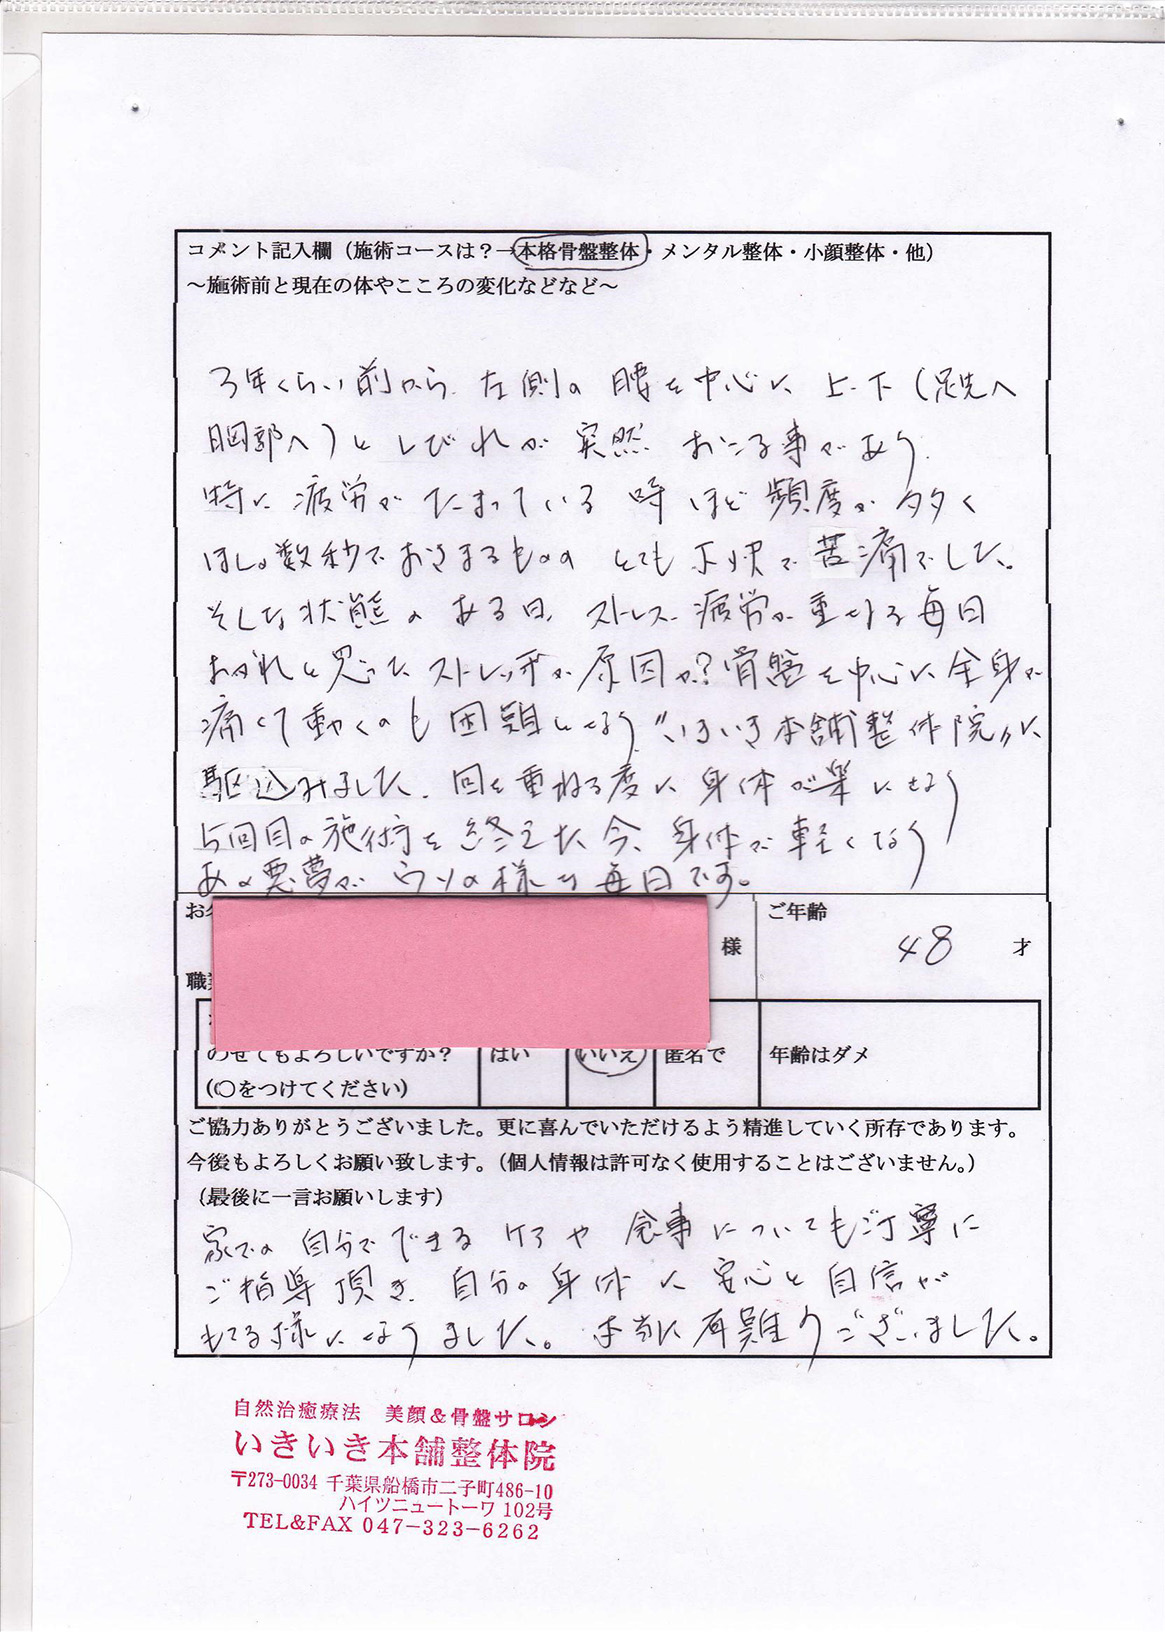 コメント記入欄（施術コースは？→本格骨盤整体・メンタル整体・小顔整体・他）
～施術前と現在の体やこころの変化などなど～
3年くらい前から、左側の腰を中心に、上・下（足先へ
胸部へ）としびれが突然おこる事があり、
特に疲労がたまっている時ほど頻度が多く
ほし。数秒でおさまるものの とても不快で苦痛でした。
そんな状態のある日、ストレス、疲労が重なる毎日
おがれと思ったストレッチが原因か？骨盤を中心に全身が
痛くて動くのも困難になり“いきいき本舗整体院”に
駆込みました。回を重ねる度に身体が楽になり
5回目の施術を終えた今、身体が軽くなり
あの悪夢がウソの様な毎日です。
お
様
ご年齢
48 才
職
のせてもよろしいですか？ はい いいえ 匿名で 年齢はダメ
（〇をつけてください）
ご協力ありがとうございました。更に喜んでいただけるよう精進していく所存であります。
今後もよろしくお願い致します。（個人情報は許可なく使用することはございません。）
（最後に一言お願いします）
家での自分でできるケアや食事についてもご丁寧に
ご指導頂き、自分の身体に安心と自信が
もてる様になりました。本当に有難うございました。
自然治癒療法 美顔＆骨盤サロン
いきいき本舗整体院
〒273-0034 千葉県船橋市二子町486-10
ハイツニュートーワ 102号
TEL&FAX 047-323-6262